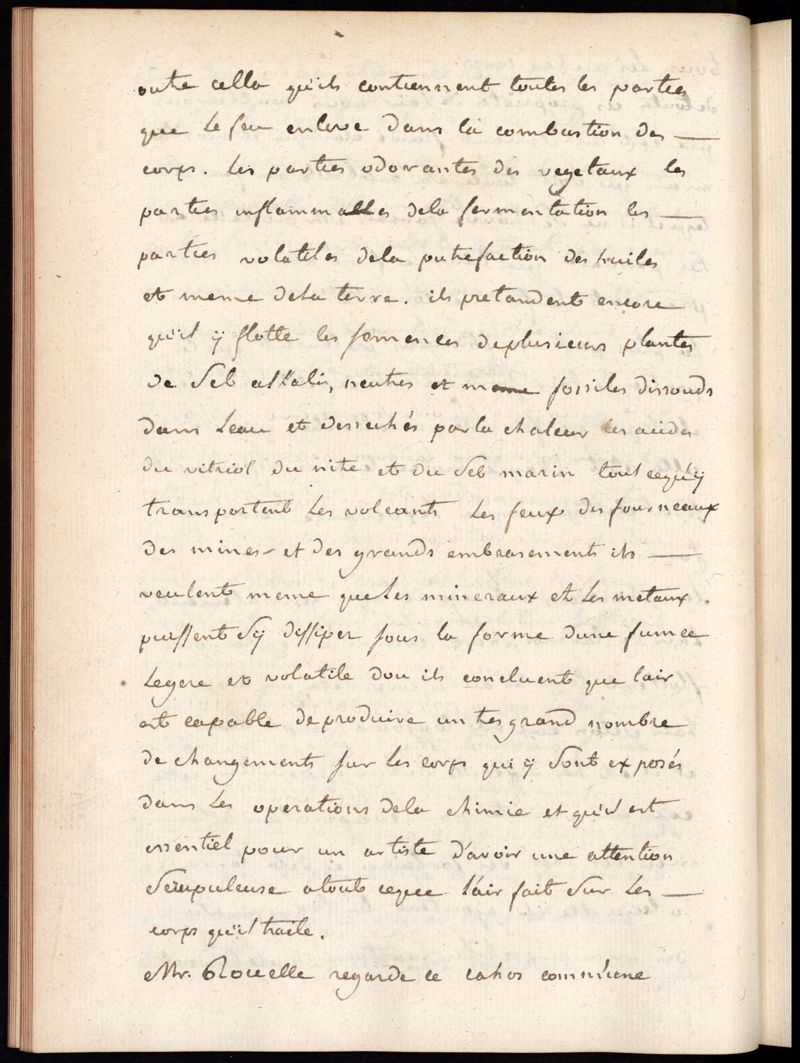 outre cella qu'ils contiennent toutes les parties
que le feu enleve dans la combustion des
corps. les parties odorantes des vegetaux les
parties inflammables dela fermentation les
parties volatiles dela putrefaction des huiles
et meme dela terre. ils pretandent encore
qu'il y flotte les semences deplusieurs plantes
de sels alkalis, neutres et meme fossiles dissouds
dans leau et dessechés par la chaleur les acides
du vitriol du nitre et du sel marin tout cequ'y
transportent les volcants les feux des fourneaux
des mines et des grands embrasements ils
veulent meme queles mineraux et les metaux
puissent sy dissiper sous la forme dune fumee
legere et volatile dou ils concluent que lair
est capable deproduire un tres grand nombre
de changements sur les corps qui y sont exposés
dans les operations dela chimie et qu'il est
essentiel pour un artiste d'avoir une attention
scrupuleuse a tout ceque l'air fait sur les
corps qu'il traite.
Mr. Rouelle regarde ce cahos comme une